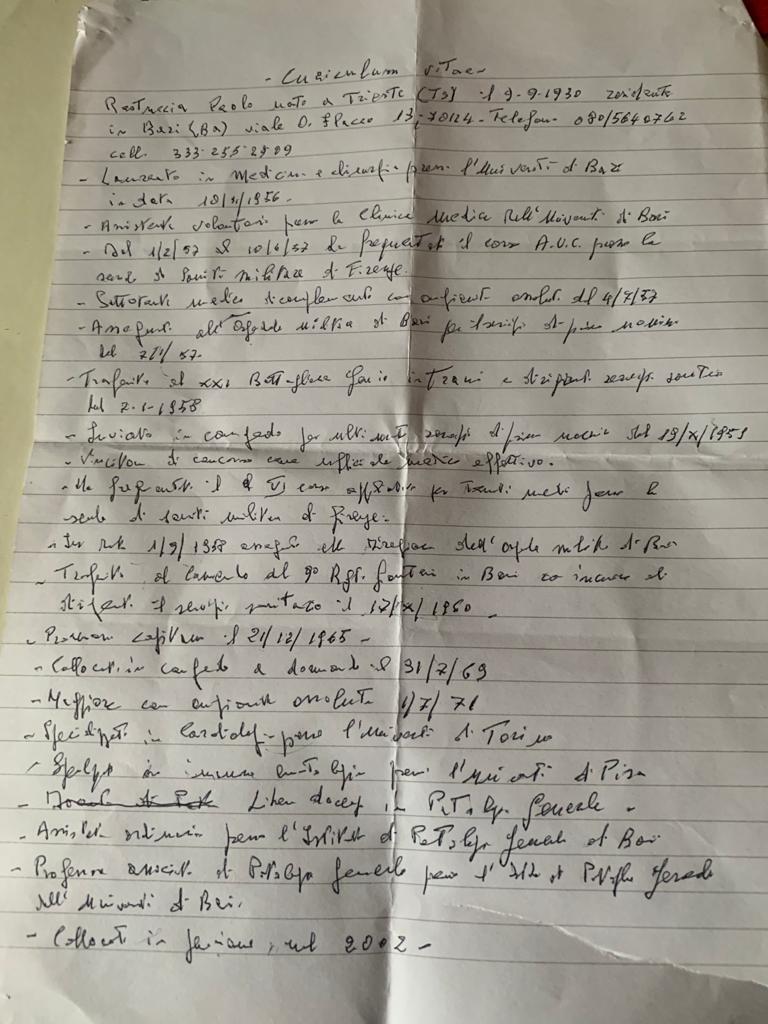 - Curriculum vitae -
Paolo nato a Trieste (TS) il 9-9-1930 residente
in Bari (Ba) viale O. Flacco 13, 70124 - Telefono 080/5640762
cell. 333-255-2909
- Laureato in Medicina e chirurgia presso l'Università di Bari
in data
- Assistente volontario presso la Clinica medica dell'Università di Bari
- Dal 1/2/57 al ha frequentato il corso A.U.C. presso la
di Sanità militare di Firenze.
- Sottotenente medico di complemento con anzianità assoluta del 4/7/57
- Assegnato all'Ospedale militare di Bari per il servizio di prima nomina
dal
- Trasferito al XXI Battaglione Genio in Trani e servizio sanitario
dal 2-1-1958
- Inviato in congedo per servizio di prima nomina dal
- Vincitore di concorso come ufficiale medico effettivo.
- Ha frequentato il corso per Tenenti medici presso la
di sanità militare di Firenze.
- In data 1/9/1958 assegnato alla Direzione dell'Osp.le militare di Bari
- Trasferito al 9° Rgt. Fanteria in Bari con incarico di
dirigente il servizio sanitario il 17/X/1960
- Promosso capitano il 21/12/1965 -
- Collocato in congedo a domanda il 31/7/69
- Maggiore con anzianità assoluta 1/7/71
- Specializzato in Cardiologia presso l'Università di Torino
in presso l'Università di Pisa
- Libera docenza in Patologia Generale -
- Assistente ordinario presso l'Istituto di Patologia Generale di Bari
- Professore associato di Patologia Generale presso l' di Patologia Generale
dell'Università di Bari.
- Collocato in pensione nel 2002 -